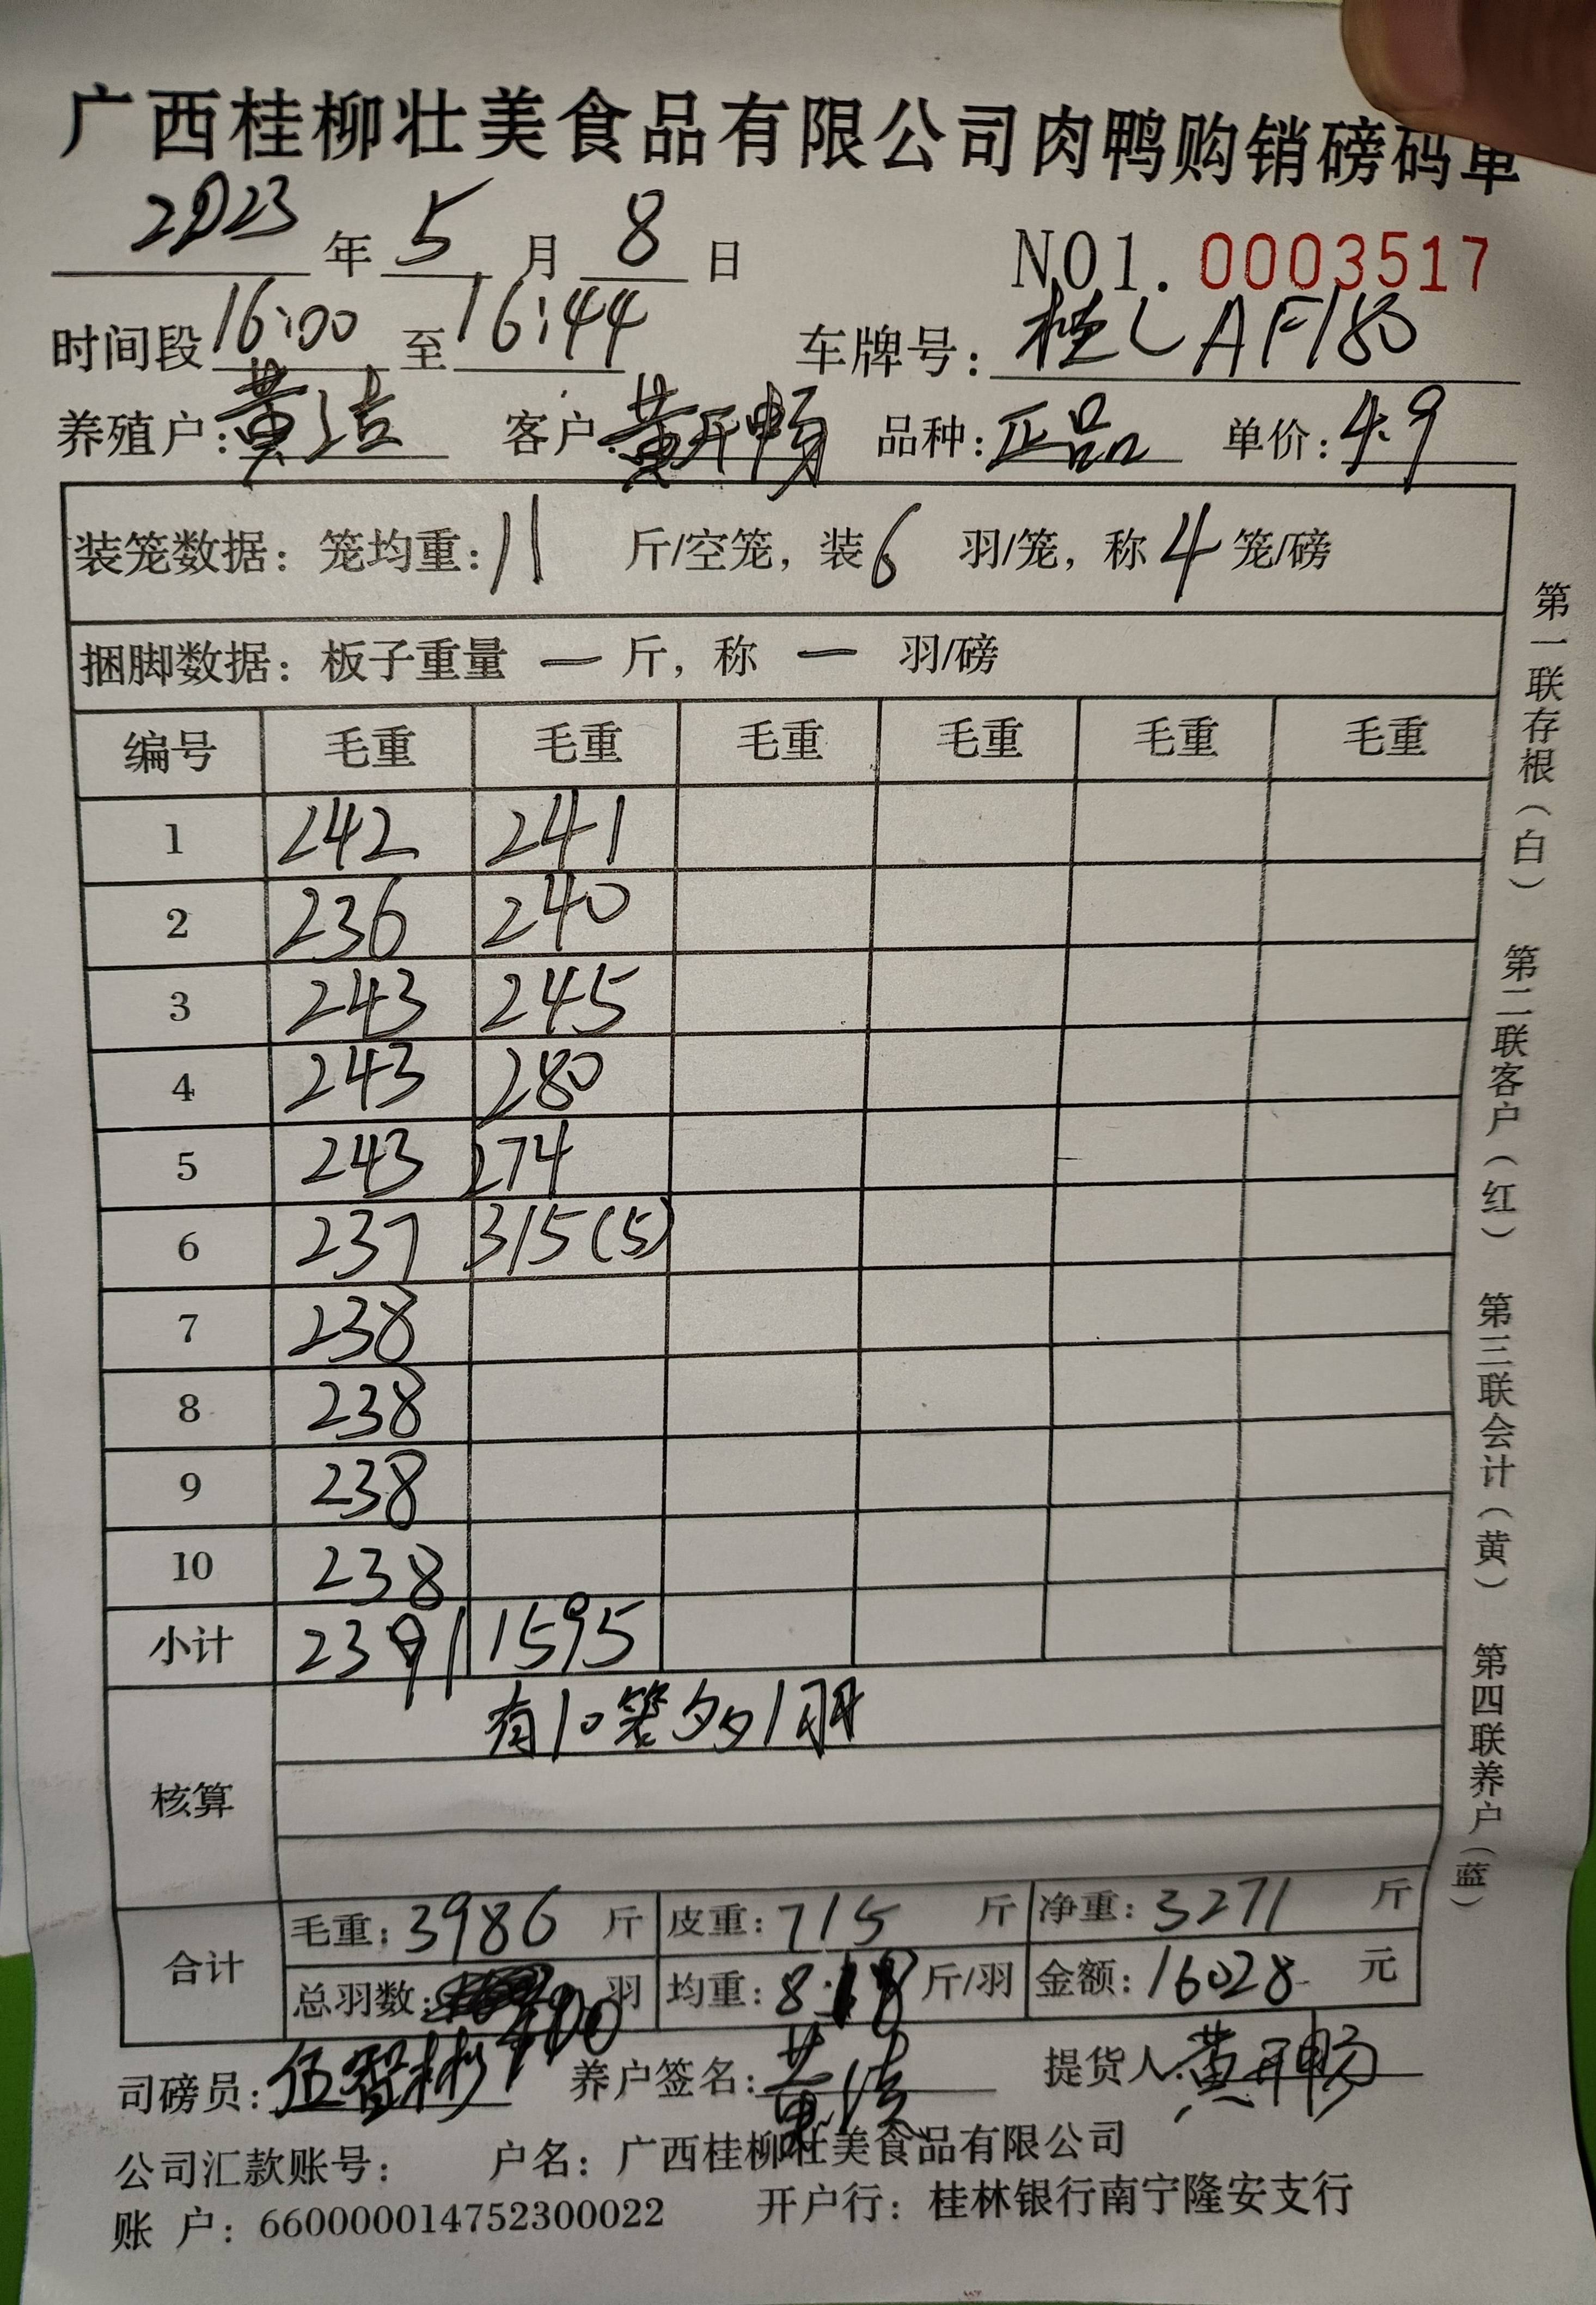 广西桂柳壮美食品有限公司肉鸭购销磅码单
2023年5月8日 NO1.0003517
时间段16:00至16:44 车牌号:桂LAF180
养殖户:黄洁 客户:黄开畅 品种:正品 单价:4.9
装笼数据:笼均重:11斤/空笼,装6羽/笼,称4笼/磅
捆脚数据:板子重量—斤,称—羽/磅
编号 毛重 毛重 毛重 毛重 毛重 毛重
1 242 241
2 236 240
3 243 245
4 243 280
5 243 274
6 237 315(5)
7 238
8 238
9 238
10 238
小计 2391 1595
核算 有10笼多1羽
合计 毛重:3986斤 皮重:715斤 净重:3271斤
总羽数:400羽 均重:8.18斤/羽 金额:16028元
司磅员: 养户签名:黄洁 提货人:黄开畅
公司汇款账号: 户名:广西桂柳壮美食品有限公司
账 户:660000014752300022 开户行:桂林银行南宁隆安支行
第一联存根(白) 第二联客户(红) 第三联会计(黄) 第四联养户(蓝)